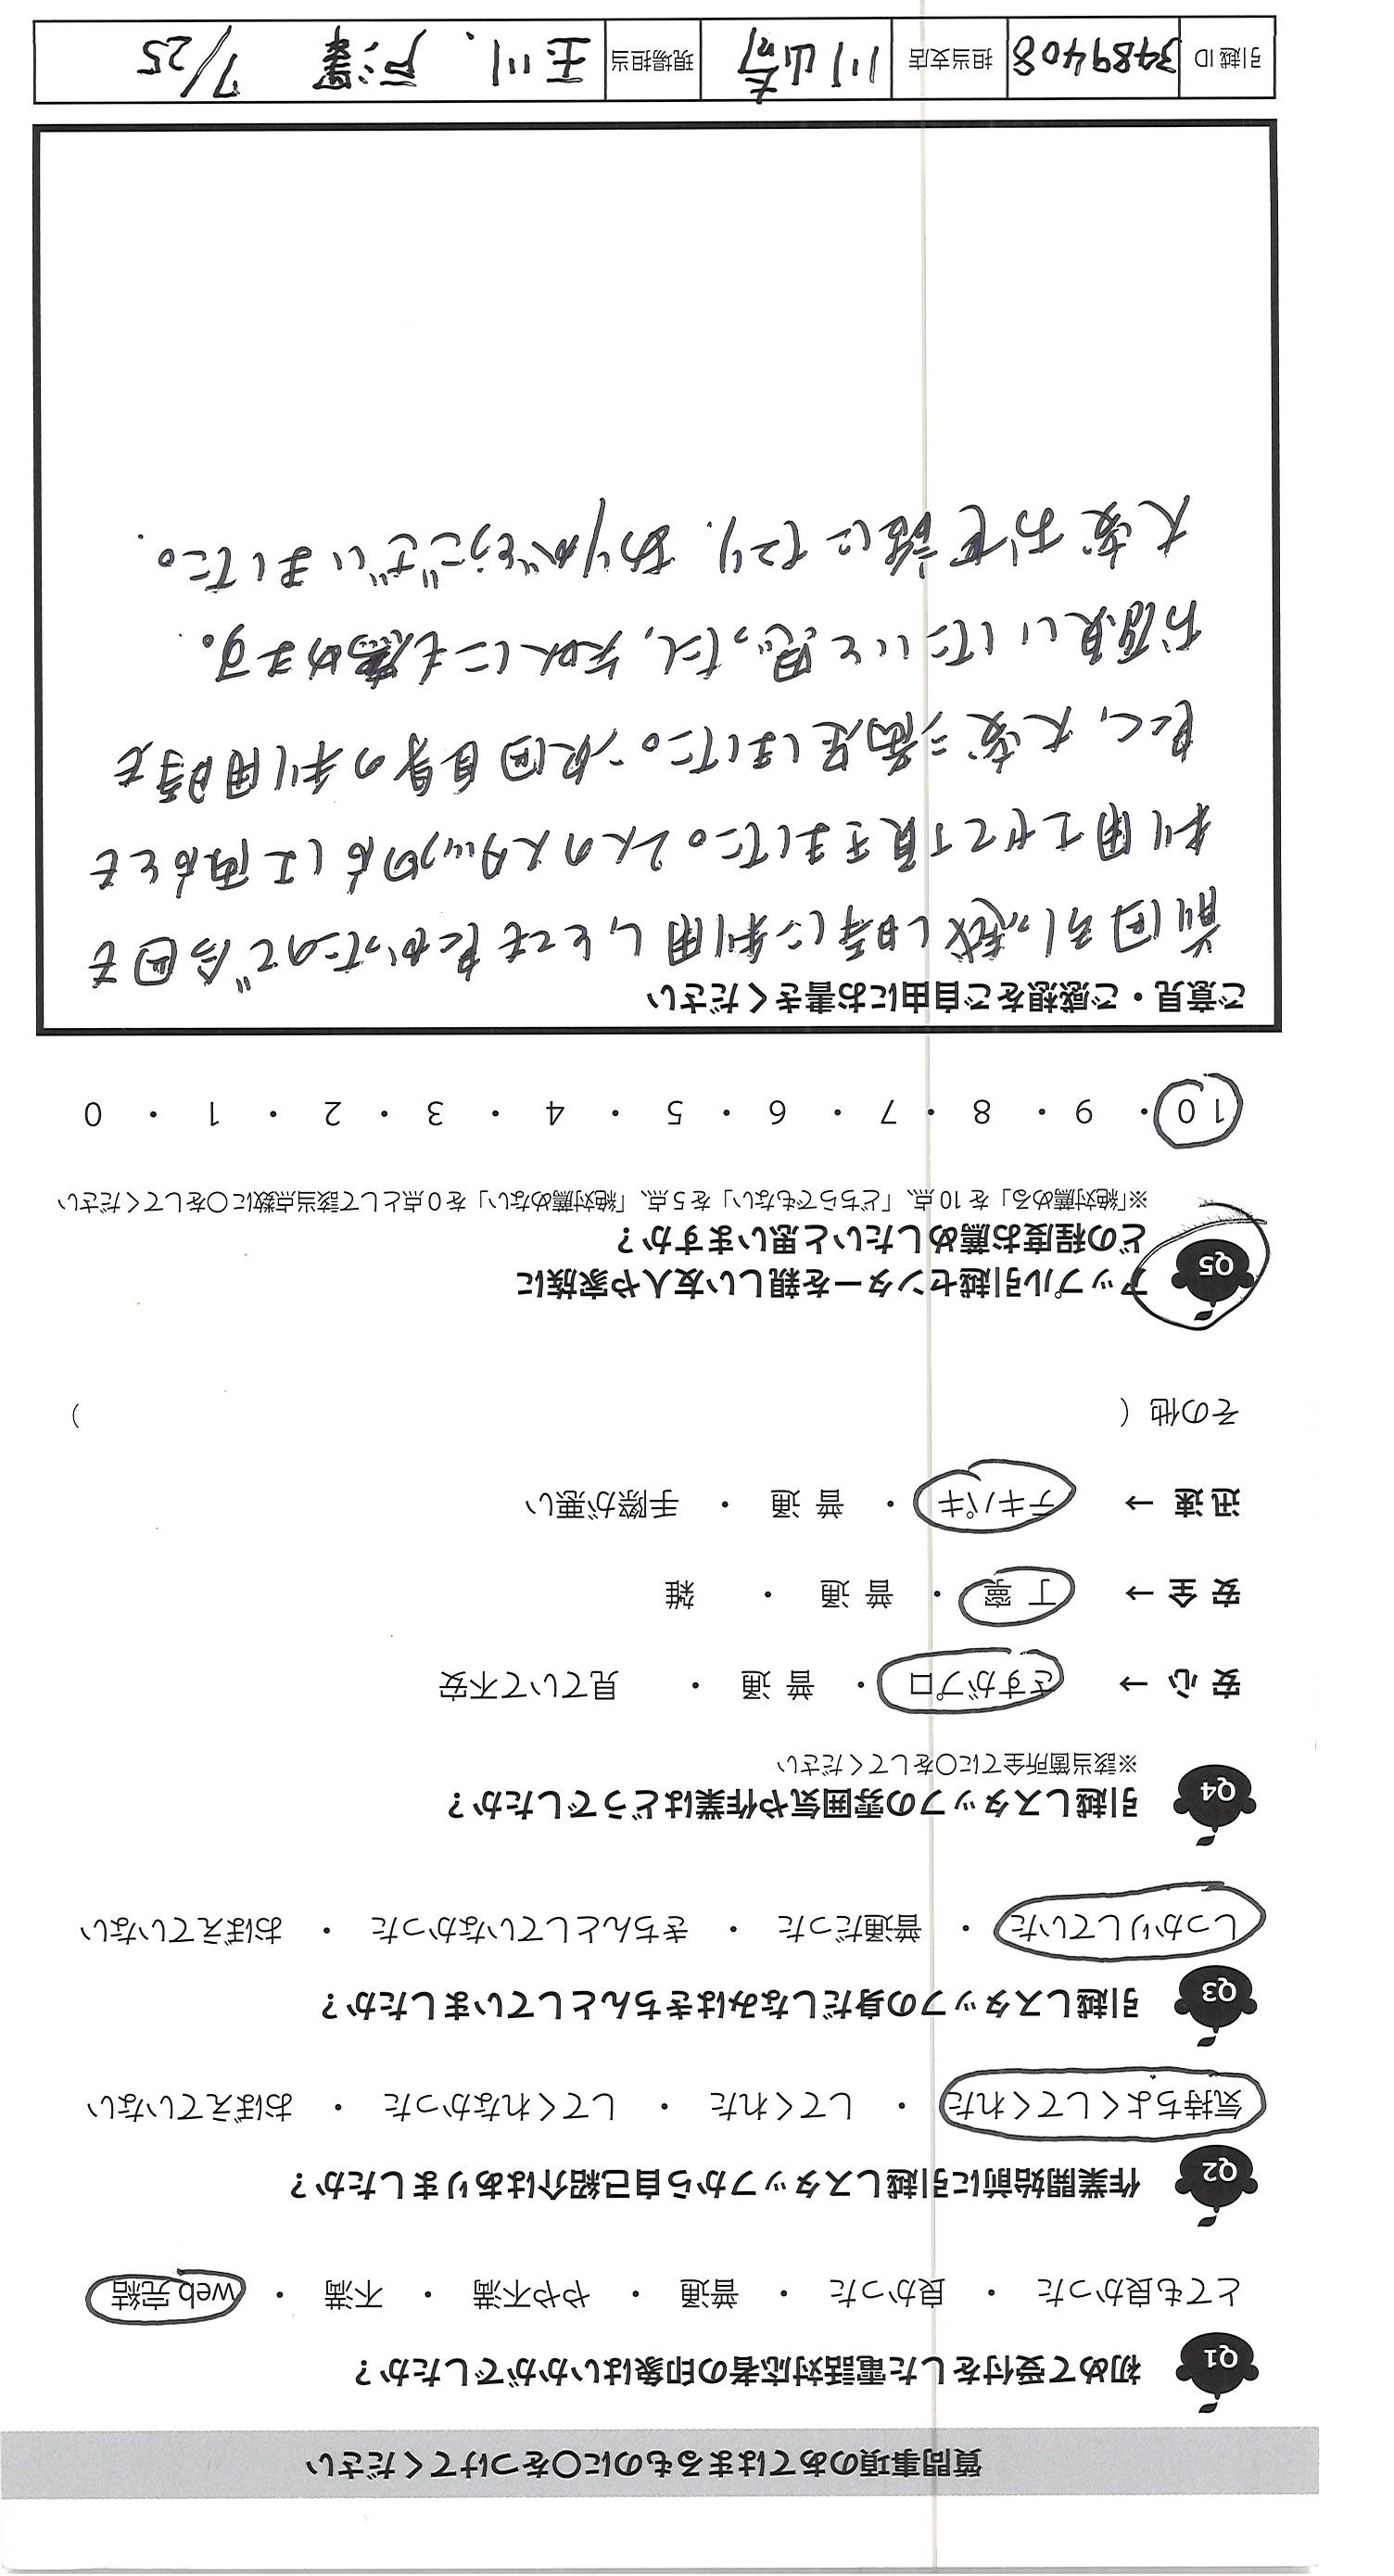 質問事項のあてはまるものに○をつけてください
Q1 初めて受付をした電話対応者の印象はいかがでしたか？
とても良かった ・ 良かった ・ 普通 ・ やや不満 ・ 不満 ・ web完結
Q2 作業開始前に引越しスタッフから自己紹介はありましたか？
気持ちよくしてくれた ・ してくれた ・ してくれなかった ・ おぼえていない
Q3 引越しスタッフの身だしなみはきちんとしていましたか？
しっかりしていた ・ 普通だった ・ きちんとしていなかった ・ おぼえていない
Q4 引越しスタッフの雰囲気や作業はどうでしたか？
※該当箇所全てに○をしてください
安心 → さすがプロ ・ 普通 ・ 見ていて不安
安全 → 丁寧 ・ 普通 ・ 雑
迅速 → テキパキ ・ 普通 ・ 手際が悪い
その他（ ）
Q5 アップル引越センターを親しい友人や家族に
どの程度お薦めしたいと思いますか？
※「絶対薦める」を10点、「どちらでもない」を5点、「絶対薦めない」を0点として該当点数に○をしてください
10 ・ 9 ・ 8 ・ 7 ・ 6 ・ 5 ・ 4 ・ 3 ・ 2 ・ 1 ・ 0
ご意見・ご感想をご自由にお書きください
前回引っ越し時に利用し、とても良かったので今回も
利用させて頂きました。2人のスタッフの方は工両方とも
良く、大変満足しました。次回自身の利用時も
お願いしたいと思ったし、知人にも薦めます。
大変お世話になり、ありがとうございました。
引越ID 3489408 担当支店 川崎 現場担当 玉川、戸澤 7/25